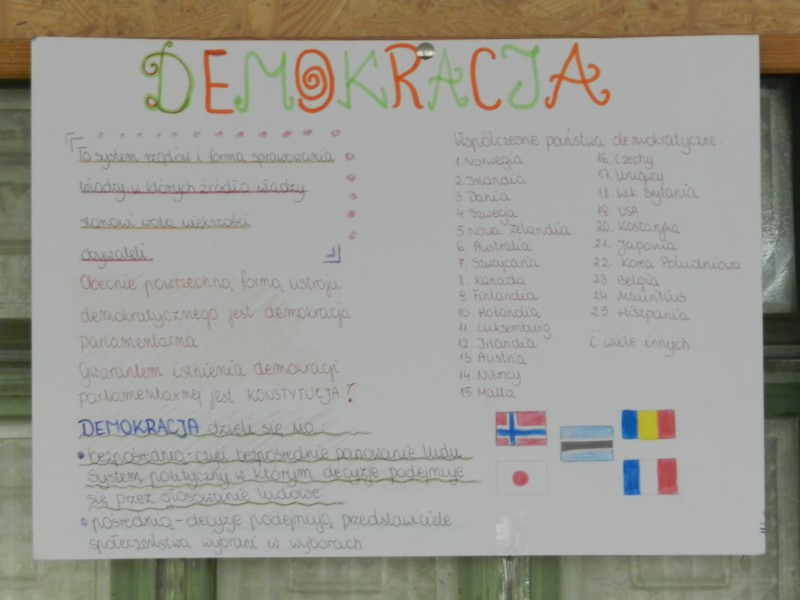 DEMOKRACJA
To system rządów i forma sprawowania
władzy, w których źródło władzy
stanowi wola większości
obywateli.
Obecnie powrzechną formą ustroju
demokratycznego jest demokracja
parlamentarna.
Gwarantem istnienia demokracji
parlamentarnej jest KONSTYTUCJA!
DEMOKRACJA dzieli się na:
• bezpośrednia - czyli bezpośrednie panowanie ludu.
System polityczny w którym decyzje podejmuje
się przez głosowanie ludowe
• pośrednia - decyzje podejmują przedstawiciele
społeczeństwa wybrani w wyborach.
Współczesne państwa demokratyczne:
1. Norwegia
2. Islandia
3. Dania
4. Szwecja
5. Nowa Zelandia
6. Australia
7. Szwajcaria
8. Kanada
9. Finlandia
10. Holandia
11. Luksemburg
12. Irlandia
13. Austria
14. Niemcy
15. Malta
16. Czechy
17. Urugwaj
18. Wlk. Brytania
19. USA
20. Kostaryka
21. Japonia
22. Korea Południowa
23. Belgia
24. Mauritius
25. Hiszpania
i wiele innych...